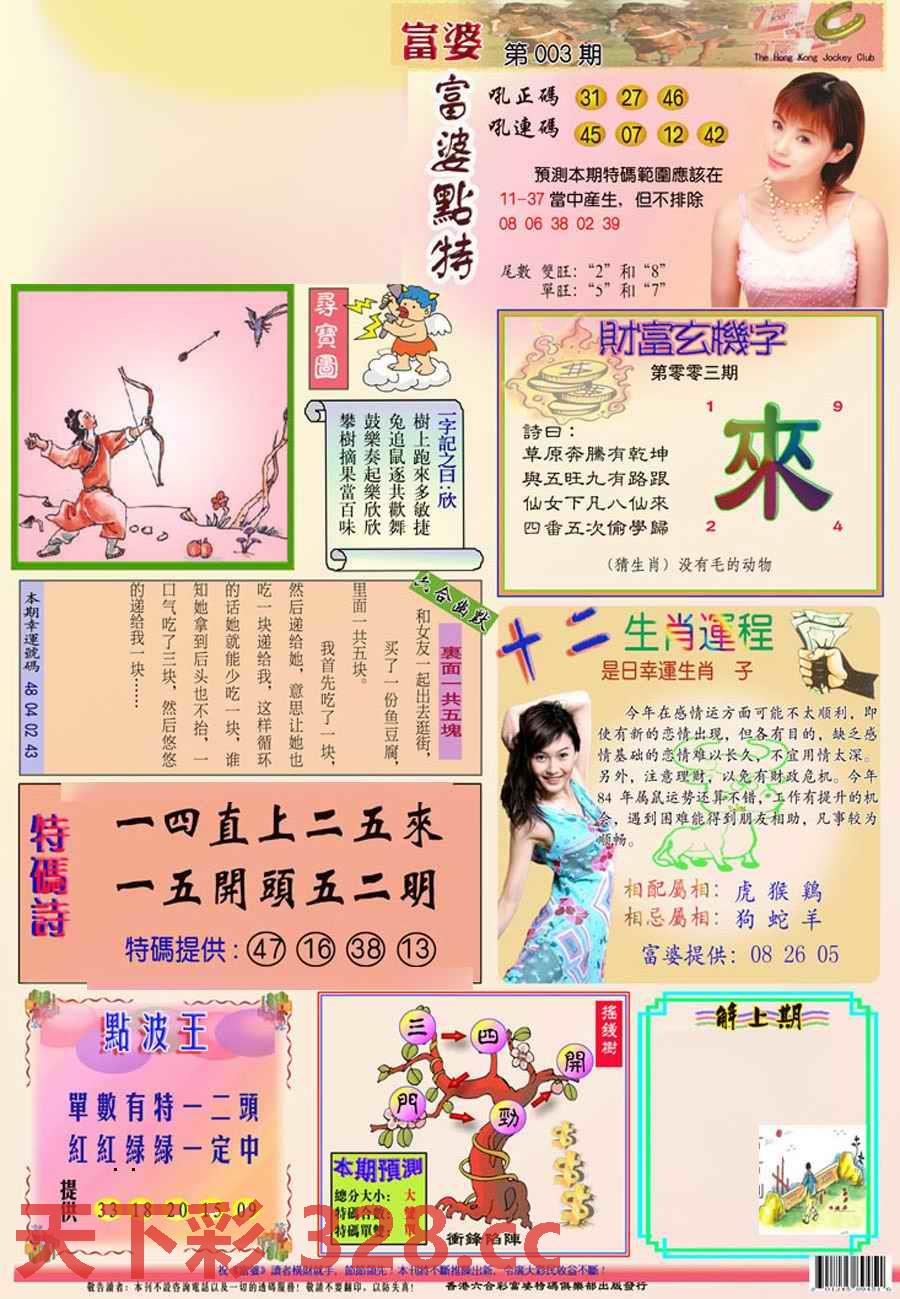 富婆
第 003 期
The Hong Kong Jockey Club
富婆點特
吼正碼 31 27 46
吼連碼 45 07 12 42
預測本期特碼範圍應該在
11-37 當中產生，但不排除
08 06 38 02 39
尾數 雙旺：“2”和“8”
單旺：“5”和“7”
尋寶圖
一字記之曰:欣
樹上跑來多敏捷
兔追鼠逐共歡舞
鼓樂奏起樂欣欣
攀樹摘果當百味
財富玄機字
第零零三期
詩曰：
草原奔騰有乾坤
與五旺九有路跟
仙女下凡八仙來
四番五次偷學歸
1 9
來
2 4
（猜生肖）没有毛的动物
六合幽默
裏面一共五塊
和女友一起出去逛街，
买了一份鱼豆腐，
里面一共五块。
我首先吃了一块，
然后递给她，意思让她也
吃一块递给我，这样循环
的话她就能少吃一块，谁
知她拿到后头也不抬，一
口气吃了三块，然后悠悠
的递给我一块……
本期幸運號碼 48 04 02 43
十二生肖運程
是日幸運生肖 子
今年在感情运方面可能不太顺利，即
使有新的恋情出现，但各有目的，缺乏感
情基础的恋情难以长久，不宜用情太深。
另外，注意理财，以免有财政危机。今年
84 年属鼠运势还算不错，工作有提升的机
会，遇到困难能得到朋友相助，凡事较为
顺畅。
相配屬相：虎 猴 鷄
相忌屬相：狗 蛇 羊
富婆提供：08 26 05
特碼詩
一四直上二五來
一五開頭五二明
特碼提供：47 16 38 13
點波王
單數有特一二頭
紅紅緑緑一定中
提供 33 18 20 15 09
搖錢樹
三 四
開
門 勁
本期預測
總分大小： 大
特碼合數：
特碼單雙： 單
衝鋒陷陣
解上期
天下彩 328.cc
祝《富婆》讀者橫財就手，節節領先！本刊將不斷推陳出新，令廣大彩民收益不斷！
敬告讀者：本刊不設咨詢電話以及一切的透碼服務！敬請不要翻印，以防失真！
香港六合彩富婆特碼俱樂部出版發行